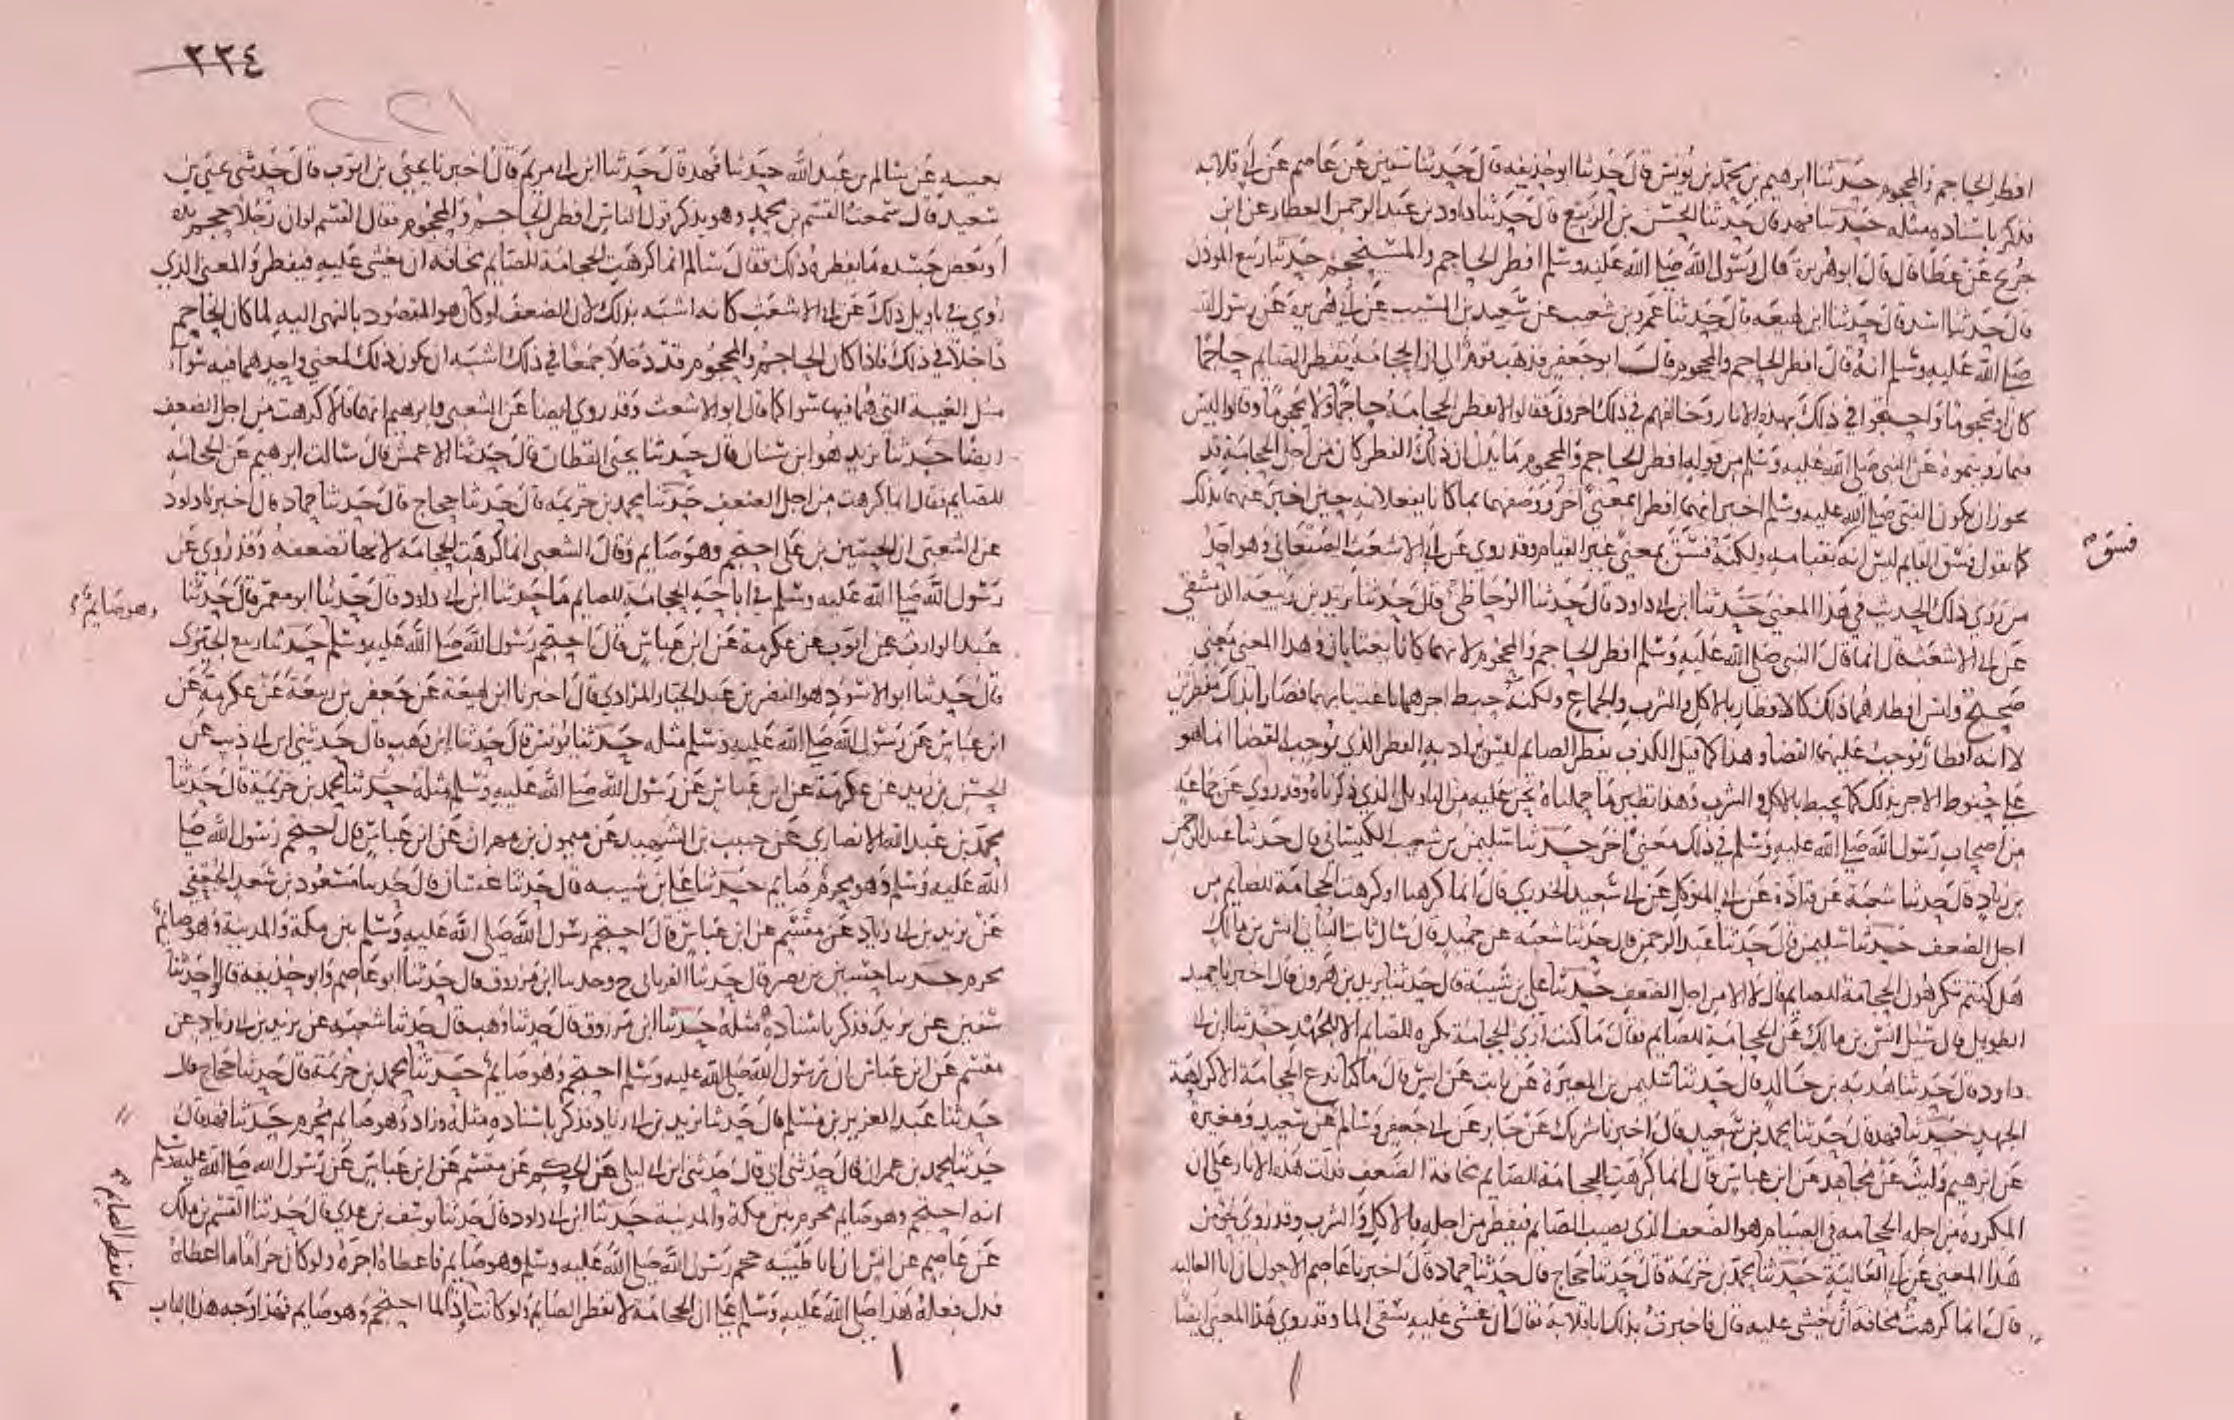 افطر الحاجم والمحجوم حدثنا ابرهيم بن محمد بن يونس قال حدثنا ابو حذيفه قال حدثنا سفين عن عاصم عن ابي قلابه
فذكر باسناده مثله حدثنا فهد قال حدثنا الحسن بن الربيع قال حدثنا داود بن عبد الرحمن العطار عن ابن
جريج عن عطا قال قال ابو هريرة قال رسول الله صلى الله عليه وسلم افطر الحاجم والمستحجم حدثنا ربيع الموذن
قال حدثنا اسد قال حدثنا ابن لهيعة قال حدثنا عمرو بن شعيب عن سعيد بن المسيب عن ابي هريرة عن رسول الله
صلى الله عليه وسلم انه قال افطر الحاجم والمحجوم قال ابو جعفر فذهب قوم الى ان الحجامة يفطر الصايم حاجما
كان او محجوما واحتجوا في ذلك بهذه الاثار وخالفهم في ذلك اخرون فقالوا لا يفطر الحجامة حاجما ولا محجوما وقالوا ليس
فيما رويتموه عن النبي صلى الله عليه وسلم من قوله افطر الحاجم والمحجوم ما يدل ان ذلك الفطر كان من اجل الحجامة قد
يجوز ان يكون النبي صلى الله عليه وسلم اخبر انهما افطرا بمعنى اخر ووصفهما بما كانا يفعلانه حين اخبر عنهما بذلك
كما يقول فسق القايم ليس انه بقيامه ولكنه فسق بمعنى غير القيام وقد روي عن ابي الاشعث الصنعاني وهو احد
فسق
من روى ذلك الحديث في هذا المعنى حدثنا ابن ابي داود قال حدثنا الوحاظي قال حدثنا يزيد بن ربيعة الدمشقي
عن ابي الاشعث قال انما قال النبي صلى الله عليه وسلم افطر الحاجم والمحجوم لانهما كانا يغتابان وهذا المعنى معنى
صحيح وليس افطارهما ذلك كالافطار بالاكل والشرب والجماع ولكنه حبط اجرهما باغتيابهما فصارا بذلك مفطرين
لا انه افطار يوجب عليهما القضا وهذا كما قيل الكذب يفطر الصايم ليس يراد به الفطر الذي يوجب القضا انما هو
على حبوط الاجر بذلك كما يحبط بالاكل والشرب وهذا نظير ما حملناه نحن عليه من التاويل الذي ذكرناه وقد روي عن جماعة
من اصحاب رسول الله صلى الله عليه وسلم في ذلك معنى اخر حدثنا سليمن بن شعيب الكيساني قال حدثنا عبد الرحمن
بن زياد قال حدثنا شعبة عن قتادة عن ابي المتوكل عن ابي سعيد الخدري قال انما كرهنا او كرهت الحجامة للصايم من
اجل الضعف حدثنا سليمن قال حدثنا عبد الرحمن قال حدثنا شعبه عن حميد قال سال ثابت البناني انس بن مالك
هل كنتم تكرهون الحجامة للصايم قال لا الا من اجل الضعف حدثنا علي بن شيبة قال حدثنا يزيد بن هرون قال اخبرنا حميد
الطويل قال سئل انس بن مالك عن الحجامة للصايم فقال ما كنت ارى الحجامة تكره للصايم الا للجهد حدثنا ابن ابي
داود قال حدثنا هدبه بن خالد قال حدثنا سليمن بن المغيرة عن ثابت عن انس قال ما كنا ندع الحجامة الا كراهية
الجهد حدثنا فهد قال حدثنا محمد بن سعيد قال اخبرنا شريك عن جابر عن ابي جعفر وسالم عن سعيد ومغيرة
عن ابرهيم وليث عن مجاهد عن ابن عباس قال انما كرهت الحجامة للصايم مخافة الضعف فدلت هذه الاثار على ان
المكروه من اجله الحجامة في الصيام هو الضعف الذي يصيب الصايم فيفطر من اجله بالاكل والشرب وقد روي نحو من
هذا المعنى عن ابي العالية حدثنا محمد بن خزيمة قال حدثنا حجاج قال حدثنا حماد قال اخبرنا عاصم الاحول ان ابا العاليه
قال انما كرهت مخافة ان يغشى عليه قال فاخبرت بذلك ابا قلابة فقال ان غشي عليه يسقى الما وقد روي هذا المعنى ايضا
٢٢٤
٢٢١
بعينه عن سالم بن عبد الله حدثنا فهد قال حدثنا ابن ابي مريم قال اخبرنا يحيى بن ايوب قال حدثني يحيى بن
سعيد قال سمعت القسم بن محمد وهو يذكر قول الناس افطر الحاجم والمحجوم فقال القسم لو ان رجلا حجم يده
او بعض جسده ما يفطره ذلك فقال سالم انما كرهت الحجامة للصايم مخافة ان يغشى عليه فيفطر والمعنى الذي
روي في تاويل ذلك عن ابي الاشعث كانه اشبه بذلك لان الضعف لو كان هو المقصود بالنهي اليه لما كان الحاجم
داخلا في ذلك فاذا كان الحاجم والمحجوم قد دخلا جميعا في ذلك اشبه ان يكون ذلك لمعنى واحد هما فيه سوا
مثل الغيبة التي هما فيها سوا كما قال ابو الاشعث وقد روي ايضا عن الشعبي وابرهيم انهما قالا كرهت من اجل الضعف
ايضا حدثنا يزيد هو ابن سنان قال حدثنا يحيى القطان قال حدثنا الاعمش قال سالت ابرهيم عن الحجامه
للصايم فقال انما كرهت من اجل الضعف حدثنا محمد بن خزيمه قال حدثنا حجاج قال حدثنا حماد قال اخبرنا داود
عن الشعبي ان الحسين بن علي احتجم وهو صايم وقال الشعبي انما كرهت الحجامة لانها تضعفه وقد روي عن
رسول الله صلى الله عليه وسلم في اباحة الحجامة للصايم ما حدثنا ابن ابي داود قال حدثنا ابو معمر قال حدثنا
عبد الوارث عن ايوب عن عكرمة عن ابن عباس قال احتجم رسول الله صلى الله عليه وسلم حدثنا ربيع الجيزي
وهو صايم
قال حدثنا ابو الاسود هو النضر بن عبد الجبار المرادي قال اخبرنا ابن لهيعة عن جعفر بن ربيعة عن عكرمة عن
ابن عباس عن رسول الله صلى الله عليه وسلم مثله حدثنا يونس قال حدثنا ابن وهب قال حدثني ابن ابي ذيب عن
الحسن بن زيد عن عكرمة عن ابن عباس عن رسول الله صلى الله عليه وسلم مثله حدثنا محمد بن خزيمة قال حدثنا
محمد بن عبد الله الانصاري عن حبيب بن الشهيد عن ميمون بن مهران عن ابن عباس قال احتجم رسول الله صلى
الله عليه وسلم وهو محرم صايم حدثنا علي بن شيبه قال حدثنا غسان قال حدثنا مسعود بن سعد الجعفي
عن يزيد بن ابي زياد عن مقسم عن ابن عباس قال احتجم رسول الله صلى الله عليه وسلم بين مكة والمدينة وهو صايم
محرم حدثنا حسين بن نصر قال حدثنا الفريابي ح وحدثنا ابن مرزوق قال حدثنا ابو عاصم وابو حذيفه قالا حدثنا
سفين عن يزيد فذكر باسناده مثله حدثنا ابن مرزوق قال حدثنا وهب قال حدثنا شعبه عن يزيد بن ابي زياد عن
مقسم عن ابن عباس ان رسول الله صلى الله عليه وسلم احتجم وهو صايم حدثنا محمد بن خزيمة قال حدثنا حجاج قال
حدثنا عبد العزيز بن مسلم قال حدثنا يزيد بن ابي زياد فذكر باسناده مثله وزاد وهو صايم محرم حدثنا فهد قال
حدثنا محمد بن عمران قال حدثني ابي قال حدثني ابن ابي ليلى عن الحكم عن مقسم عن ابن عباس عن رسول الله صلى الله عليه وسلم
انه احتجم وهو صايم محرم بين مكة والمدينة حدثنا ابن ابي داود قال حدثنا يوسف بن عدي قال حدثنا القسم بن ملك
عن عاصم عن انس ان ابا طيبه حجم رسول الله صلى الله عليه وسلم وهو صايم فاعطاه اجره ولو كان حراما ما اعطاه
فدل بفعله هذا صلى الله عليه وسلم على ان الحجامة لا تفطر الصايم ولو كانت اذا لما احتجم وهو صايم فهذا وجه هذا الباب
مما يفطر الصايم